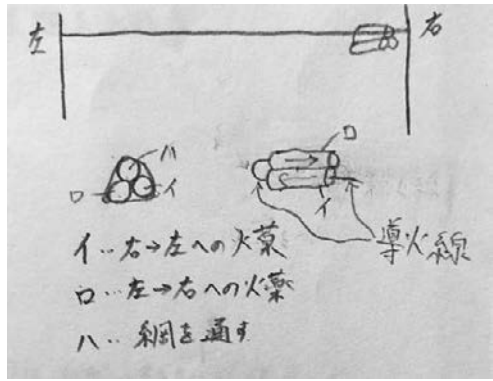 左
右
ハ
ロ
イ
ロ
イ
導火線
イ…右→左への火薬
ロ…左→右への火薬
ハ…綱を通す